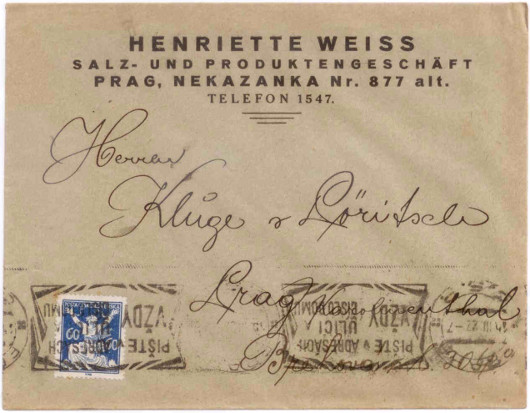 HENRIETTE WEISS
SALZ- UND PRODUKTENGESCHÄFT
PRAG, NEKAZANKA Nr. 877 alt.
TELEFON 1547.
Herren
Kluge & Löritsch
Prag
PIŠTE V ADRESÁCH
VŽDY ULICI A
ČÍSLO DOMU
PIŠTE V ADRESÁCH
VŽDY ULICI A
ČÍSLO DOMU
60